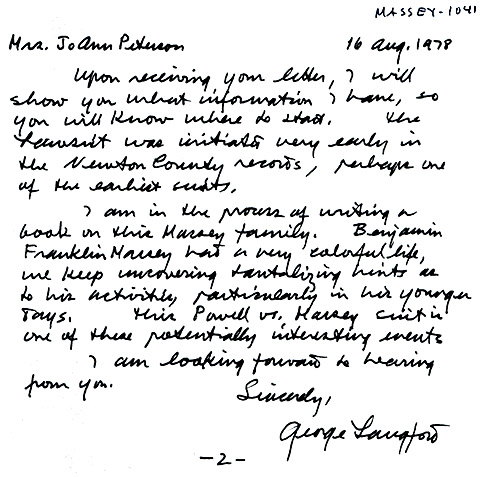 MASSEY-1041
Mrs. JoAnn Peterson 16 Aug. 1978
Upon receiving your letter, I will
show you what information I have, so
you will know where to start. The
lawsuit was initiated very early in
the Newton County records, perhaps one
of the earliest suits.
I am in the process of writing a
book on this Massey family. Benjamin
Franklin Massey had a very colorful life,
we keep uncovering tantalizing hints as
to his activities, particularly in his younger
days. This Powell vs. Massey suit is
one of these potentially interesting events
I am looking forward to hearing
from you.
Sincerely,
George Langford
-2-